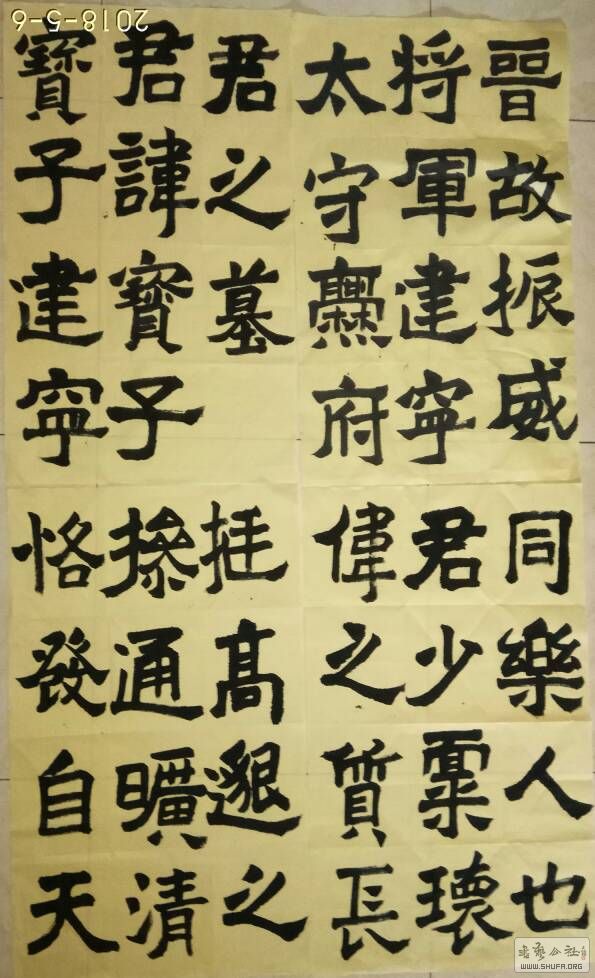 晉故振威
将軍建寧
太守爨府
君之墓
君諱寶子
寶子建寧
同樂人也
君少稟瓌
偉之質長
挺髙邈之
操通曠清
恪發自天
2018-5-6
书艺公社
WWW.SHUFA.ORG